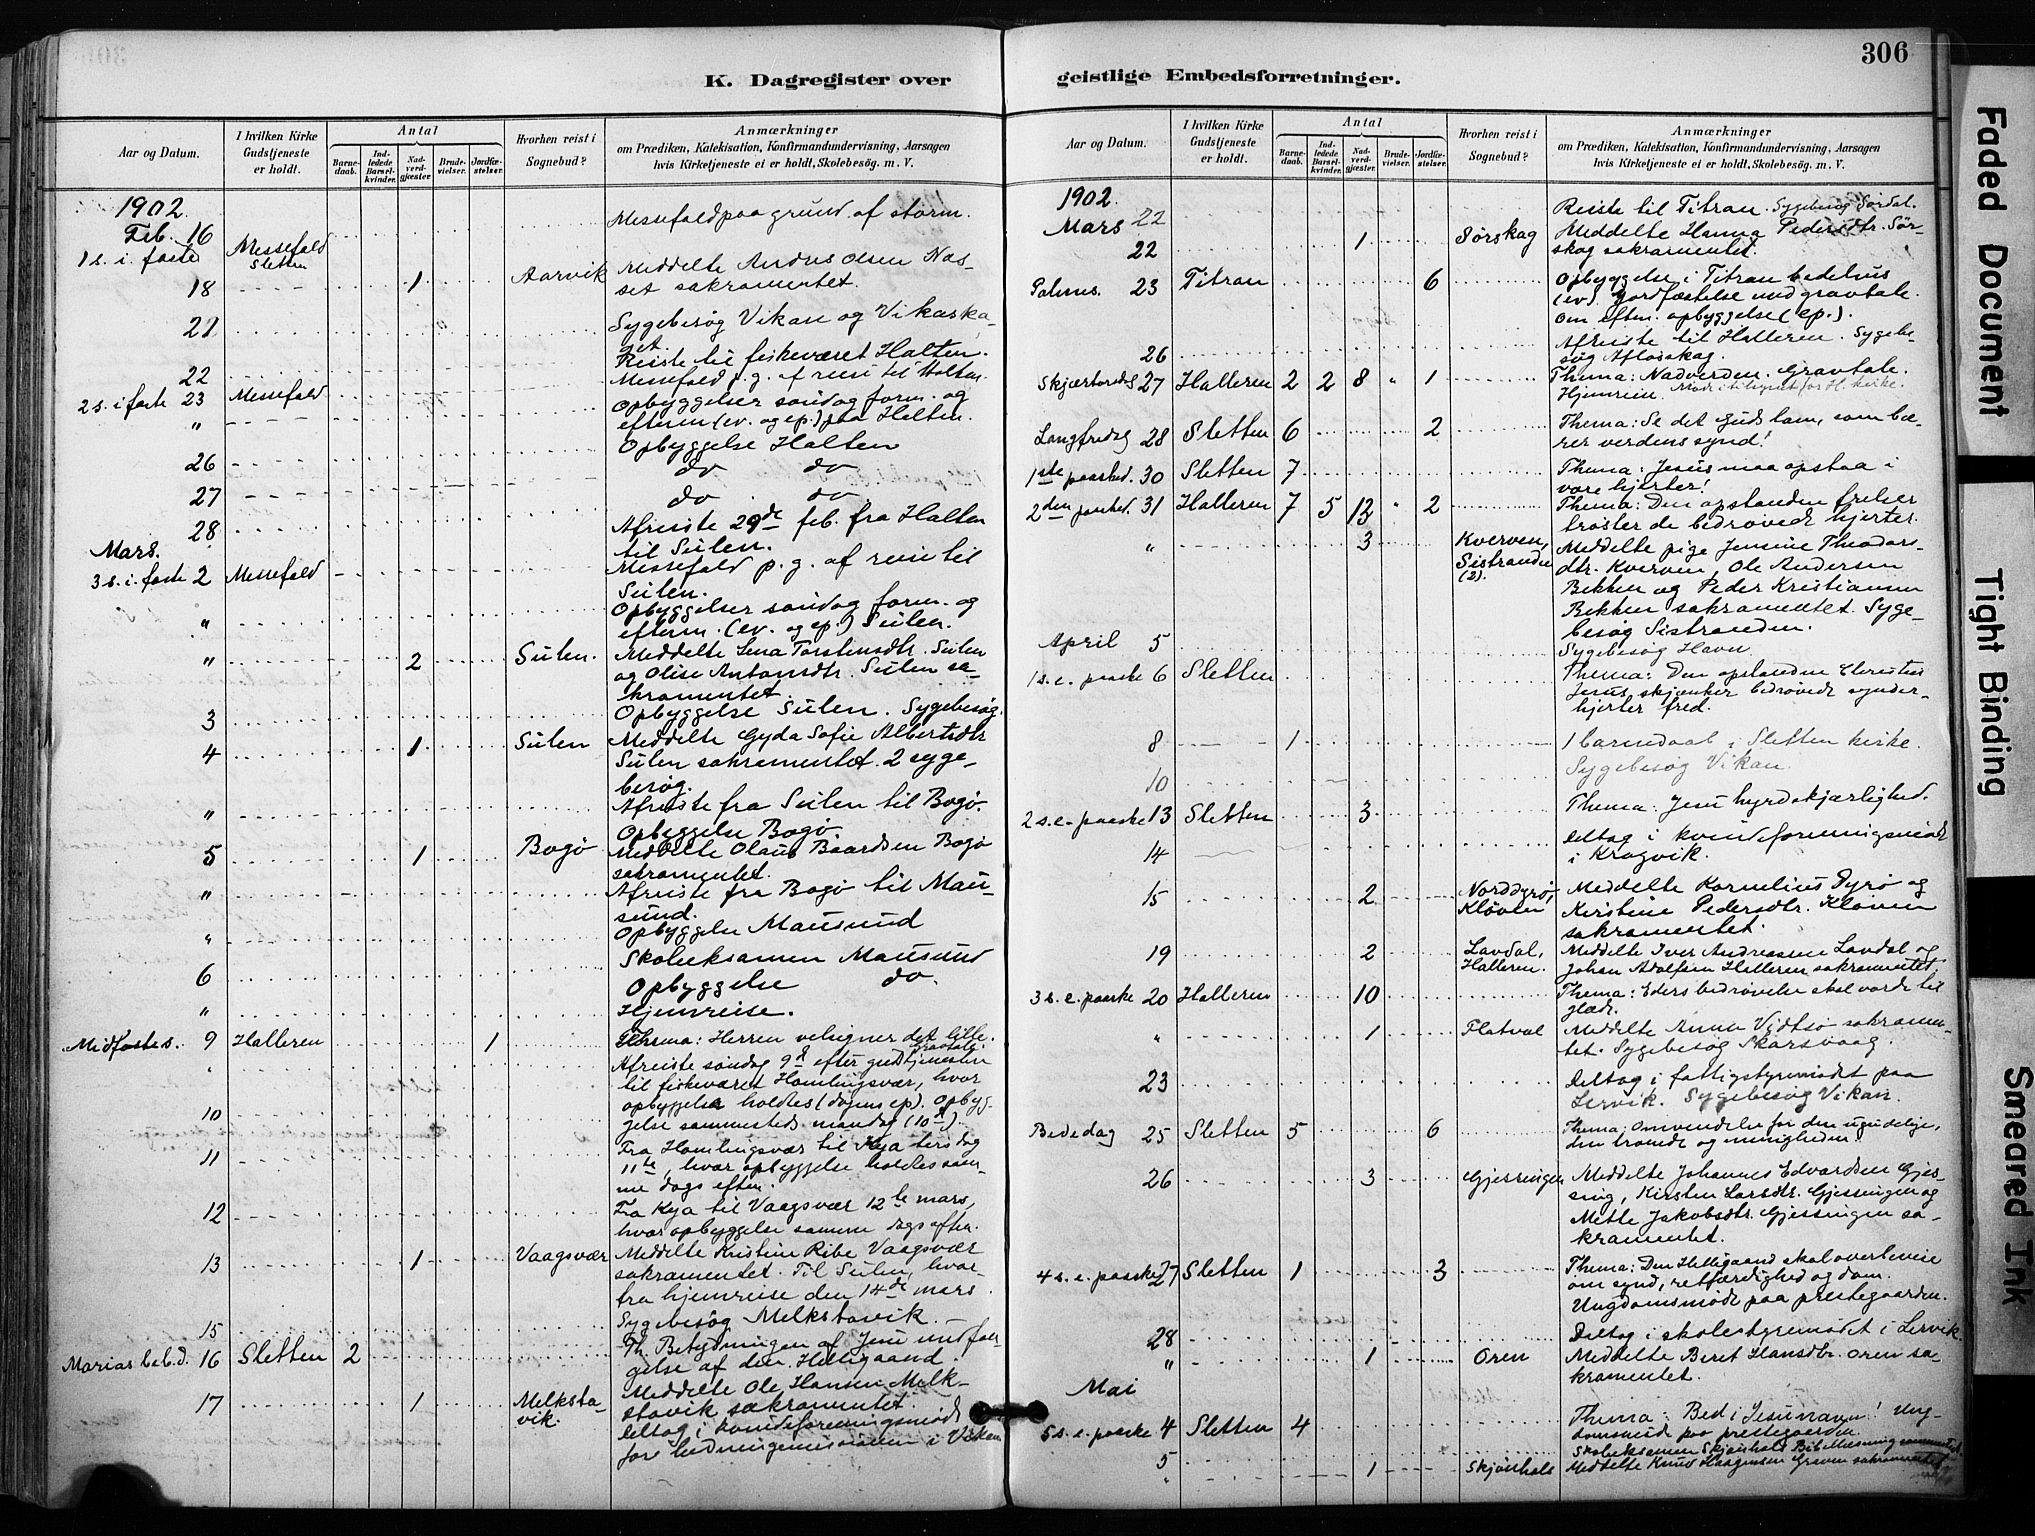 306
K. Dagregister over
Aar og Datum.
I hvilken Kirke Gudstjeneste er holdt.
Antal
Barne-daab.
Ind-ledede Barsel-kvinder.
Nad-verd-gjæster
Brude-vielser.
Jordfæ-stelser.
Hvorhen reist i Sognebud?
Anmærkninger
om Prædiken, Katekisation, Konfirmandundervisning, Aarsagen
hvis Kirketjeneste ei er holdt, Skolebesøg. m. V.
1902
Feb. 16 Messefald paa grund af storm.
1 s. i faste Messefald Sletten
18 1 Aarvik Meddelte Andus Olsen Næs-
set sakramentet.
21 Sygebesøg Vikan og Vikaska-
get.
22 Reiste til fiskeværet Halten.
2 s. i faste 23 Messefald Messefald p. g. af reise til Halten.
" Opbyggelser søndag form. og
efterm (ev. og ep.) paa Halten.
26 Opbyggelse Halten
27 do do
28 do do
Afreiste 29de feb. fra Halten
til Sulen.
Mars.
3 s. i faste 2 Messefald Messefald p. g. af reise til
Sulen.
" Opbyggelser søndag form. og
efterm. (ev. og ep.) Sulen.
" 2 Sulen. Meddelte Lena Torstensdtr. Sulen
og Olise Antonsdtr. Sulen sa-
kramentet.
3 Opbyggelse Sulen. Sygebesøg.
4 1 Sulen Meddelte Gyda Sofie Albertsdtr
Sulen sakramentet. 2 syge-
besøg.
" Afreiste fra Sulen til Bogø.
Opbyggelse Bogø.
5 1 Bogø Meddelte Olaus Baardsen Bogø
sakramentet.
" Afreiste fra Bogø til Mau-
sund.
" Opbyggelse Mausund
6 Skoleeksamen Mausund
Opbyggelse do.
" Hjemreise.
Midfastes. 9 Halleren 1 Thema: Herren velsigner det lille. Gravtale.
" Afreiste søndag 9de efter gudstjenesten
til fiskeværet Homlingsvær, hvor
opbyggelse holdtes (dagens ep). Opbyg-
10 gelse sammesteds mandag (10de).
11 Fra Homlingsvær til Kya tirsdag
11te, hvor opbyggelse holdtes sam-
me dags eften.
12 Fra Kya til Vaagsvær 12te mars,
hvor opbyggelse samme dags aften.
13 1 Vaagsvær Meddelte Kristine Ribe Vaagsvær
sakramentet. Til Sulen, hvor-
fra hjemreise den 14de mars.
15 Sygebesøg Melkstavik.
Marias beb.d. 16 Sletten 2 Th. Betydningen af Jesu undfan-
gelse af den Helligaand.
17 1 Melksta-
vik. Meddelte Ole Hansen Melk-
stavik sakramentet.
Deltog i kvindeforeningsmøde
for hedningemissionen i Vikan
geistlige Embedsforretninger.
Aar og Datum.
I hvilken Kirke Gudstjeneste er holdt.
Antal
Barne-daab.
Ind-ledede Barsel-kvinder.
Nad-verd-gjæster
Brude-vielser.
Jordfæ-stelser.
Hvorhen reist i Sognebud?
Anmærkninger
om Prædiken, Katekisation, Konfirmandundervisning, Aarsagen
hvis Kirketjeneste ei er holdt, Skolebesøg. m. V.
1902
Mars 22 Reiste til Titran. Sygebesøg Sørdal.
22 1 Sørskag Meddelte Hanna Pedersdtr. Sør-
skag sakramentet.
Palmes. 23 Titran 6 Opbyggelse i Titran bedehus
(ev). Jordfæstelse med gravtale.
Om eften. opbyggelse (ep.).
26 Afreiste til Halleren. Sygebe-
søg
Skjærtorsdag 27 Halleren 2 2 8 " 1 Thema: Nadverden. Gravtale.
Hjemreise.
Langfredag 28 Sletten 6 2 Thema: Se det Guds lam, som bæ-
rer verdens synd!
1ste paasked. 30 Sletten 7 Thema: Jesus maa opstaa i
vore hjerter!
2den paasked. 31 Halleren 7 5 12 " 2 Thema: Den opstandne frelser
trøster de bedrøvede hjerter.
" 3 Kverven,
Sistranden
(2). Meddelte pige Jensine Theodors-
dtr. Kverven, Ole Andersen
Bekken og Peder Kristiansen
Bekken sakramentet. Syge-
besøg Sistranden.
April 5 Sygebesøg Havn.
1 s. e. paaske 6 Sletten Thema: Den opstandne Christus
Jesus skjænker bedrøvede synder-
hjerter fred.
8 1 1 barnedaab i Sletten kirke.
10 Sygebesøg Vikan.
2 s. e. paaske 13 Sletten 3 Thema: Jesu hyrdekjærlighed.
14 Deltog i kvindeforeningsmøde
i Krogvik.
15 2 Norddyrø,
Kløven Meddelte Kornelius Dyrø og
Kirstine Pedersdtr. Kløven
sakramentet.
19 2 Lavdal,
Halleren. Meddelte Iver Andreassen Lavdal og
Johan Adolfsen Halleren sakramentet.
3 s. e. paaske 20 Halleren 10 Thema: Eders bedrøvelse skal vorde til
glæde.
" 1 Flatval Meddelte Anna Vidtsø sakramen-
tet. Sygebesøg Skarsvaag.
23 Deltog i fattigstyremødet paa
Lervik. Sygebesøg Vikan.
Bededag 25 Sletten 5 6 Thema: Omvendelse for den ugudelige,
den troende og menigheden.
26 3 Gjessingen Meddelte Johannes Edvardsen Gjes-
sing, Kirsten Larsdtr. Gjessingen og
Mette Jakobsdtr. Gjessingen sa-
kramentet.
4 s. e. paaske 27 Sletten 1 3 Thema: Den Helligaand skal overbevise
om synd, retfærdighed og dom.
Ungdomsmøde paa prestegaarden.
28 Deltog i skolestyremødet i Lervik.
" 1 Oren Meddelte Beret Hansdtr. Oren sa-
kramentet.
Mai
5 s. e. paaske 4 Sletten 4 Thema: Bed i Jesu navn! Ung-
domsmøde paa prestegaarden.
5 Skoleeksamen Skjønhals Bibellæsning
" 1 Skjønhals Meddelte Knud Haagensen Graven sakramentet
Faded Document
Tight Binding
Smeared Ink